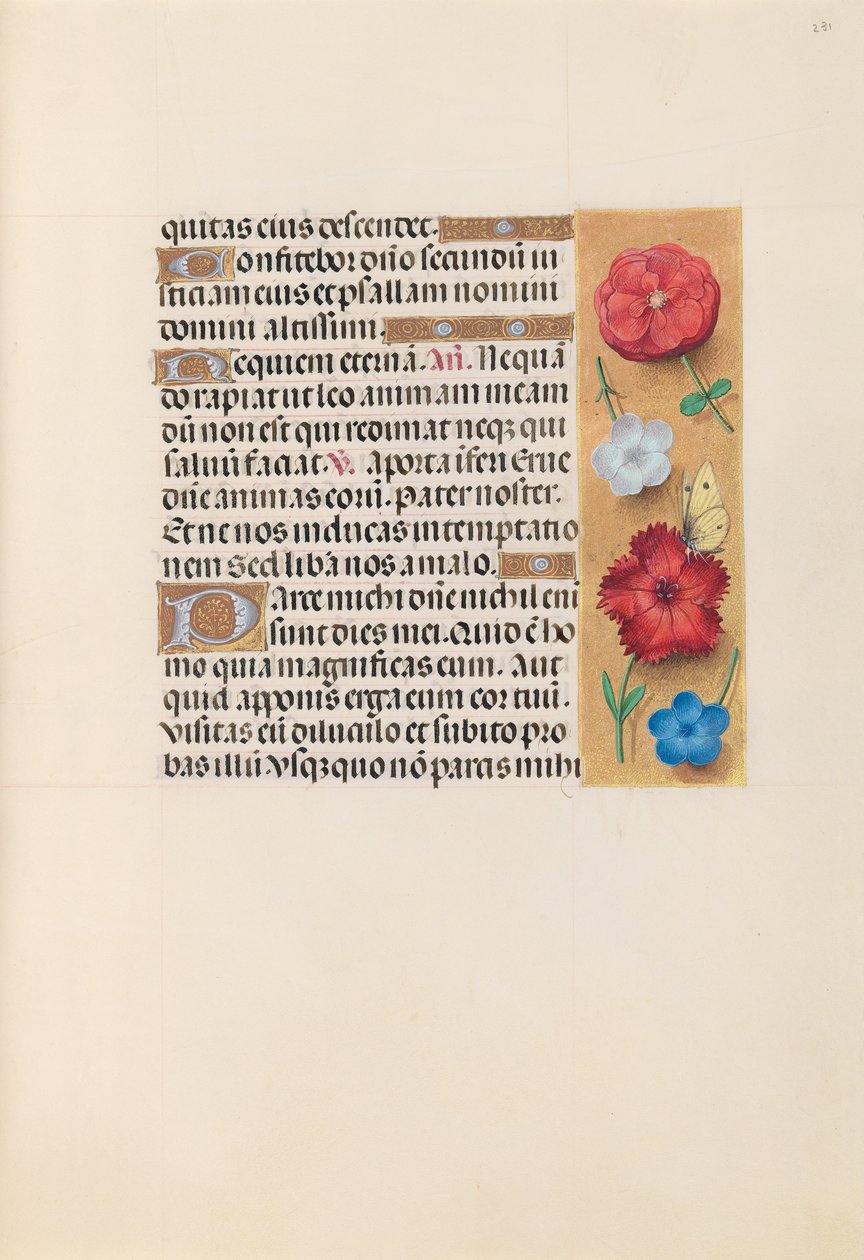 231
quitas eius descendet.
Confitebor dn̄o secundū iu
sticiam eius et psallam nomini
domini altissimi.
Requiem eternā. An̄. Nequā
do rapiat ut leo animam meam
dū non est qui redimat neqꝫ qui
saluū faciat. ℣. A porta īferi Erue
dn̄e animas eorū. Pater noster.
Et ne nos inducas in temptatio
nem Sed libā nos a malo.
Parce michi dn̄e nichil enī
sunt dies mei. Quid ē ho
mo quia magnificas eum. Aut
quid apponis erga eum cor tuū.
Visitas eū diluculo et subito pro
bas illū. Vsqꝫ quo nō parcis mihi